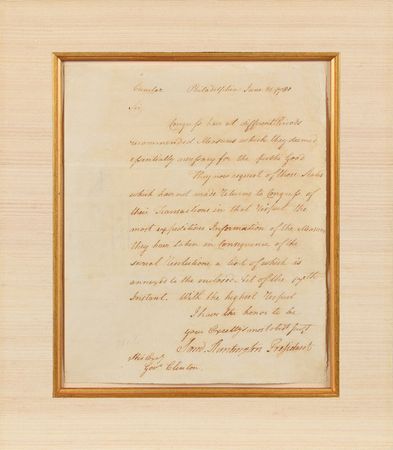 Circular Philadelphia June 21 1780
Sir,
Congress have at different Periods
recommended Measures which they deemed
essentially necessary for the public Good
They now request of those States
which have not made Returns to Congress of
their Transactions in that respect the
most expeditious Information of the Measures
they have taken in Consequence of the
several Resolutions a list of which is
annexed to the enclosed Act of the
Instant. With the highest respect
I have the honor to be
your Excellys most obdt servt
Saml Huntington President
His Excy
Govr Clinton.